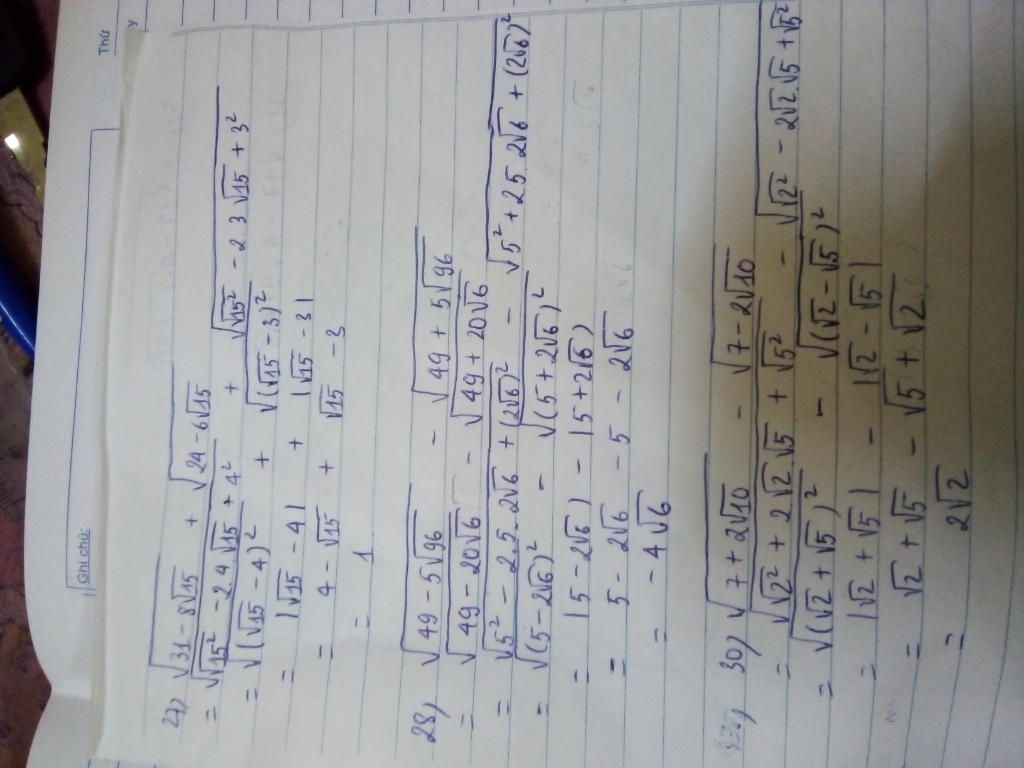 Thứ
y
Ghi chú:
27) √31-8√15 + √24-6√15
= √√15² - 2.4.√15 + 4² + √√15² - 2.3√15 + 3²
= √(√15 - 4)² + √(√15 - 3)²
= |√15 - 4| + |√15 - 3|
= 4 - √15 + √15 - 3
= 1
28) √49 - 5√96 - √49 + 5√96
= √49 - 20√6 - √49 + 20√6
= √5² - 2.5.2√6 + (2√6)² - √5² + 25 2√6 + (2√6)²
= √(5-2√6)² - √(5 + 2√6)²
= |5 - 2√6| - |5 + 2√6|
= 5 - 2√6 - 5 - 2√6
= - 4√6
30) √7 + 2√10 - √7 - 2√10
= √√2² + 2√2.√5 + √5² - √√2² - 2√2.√5 + √5²
= √(√2 + √5)² - √(√2 - √5)²
= |√2 + √5| - |√2 - √5|
= √2 + √5 - √5 + √2
= 2√2